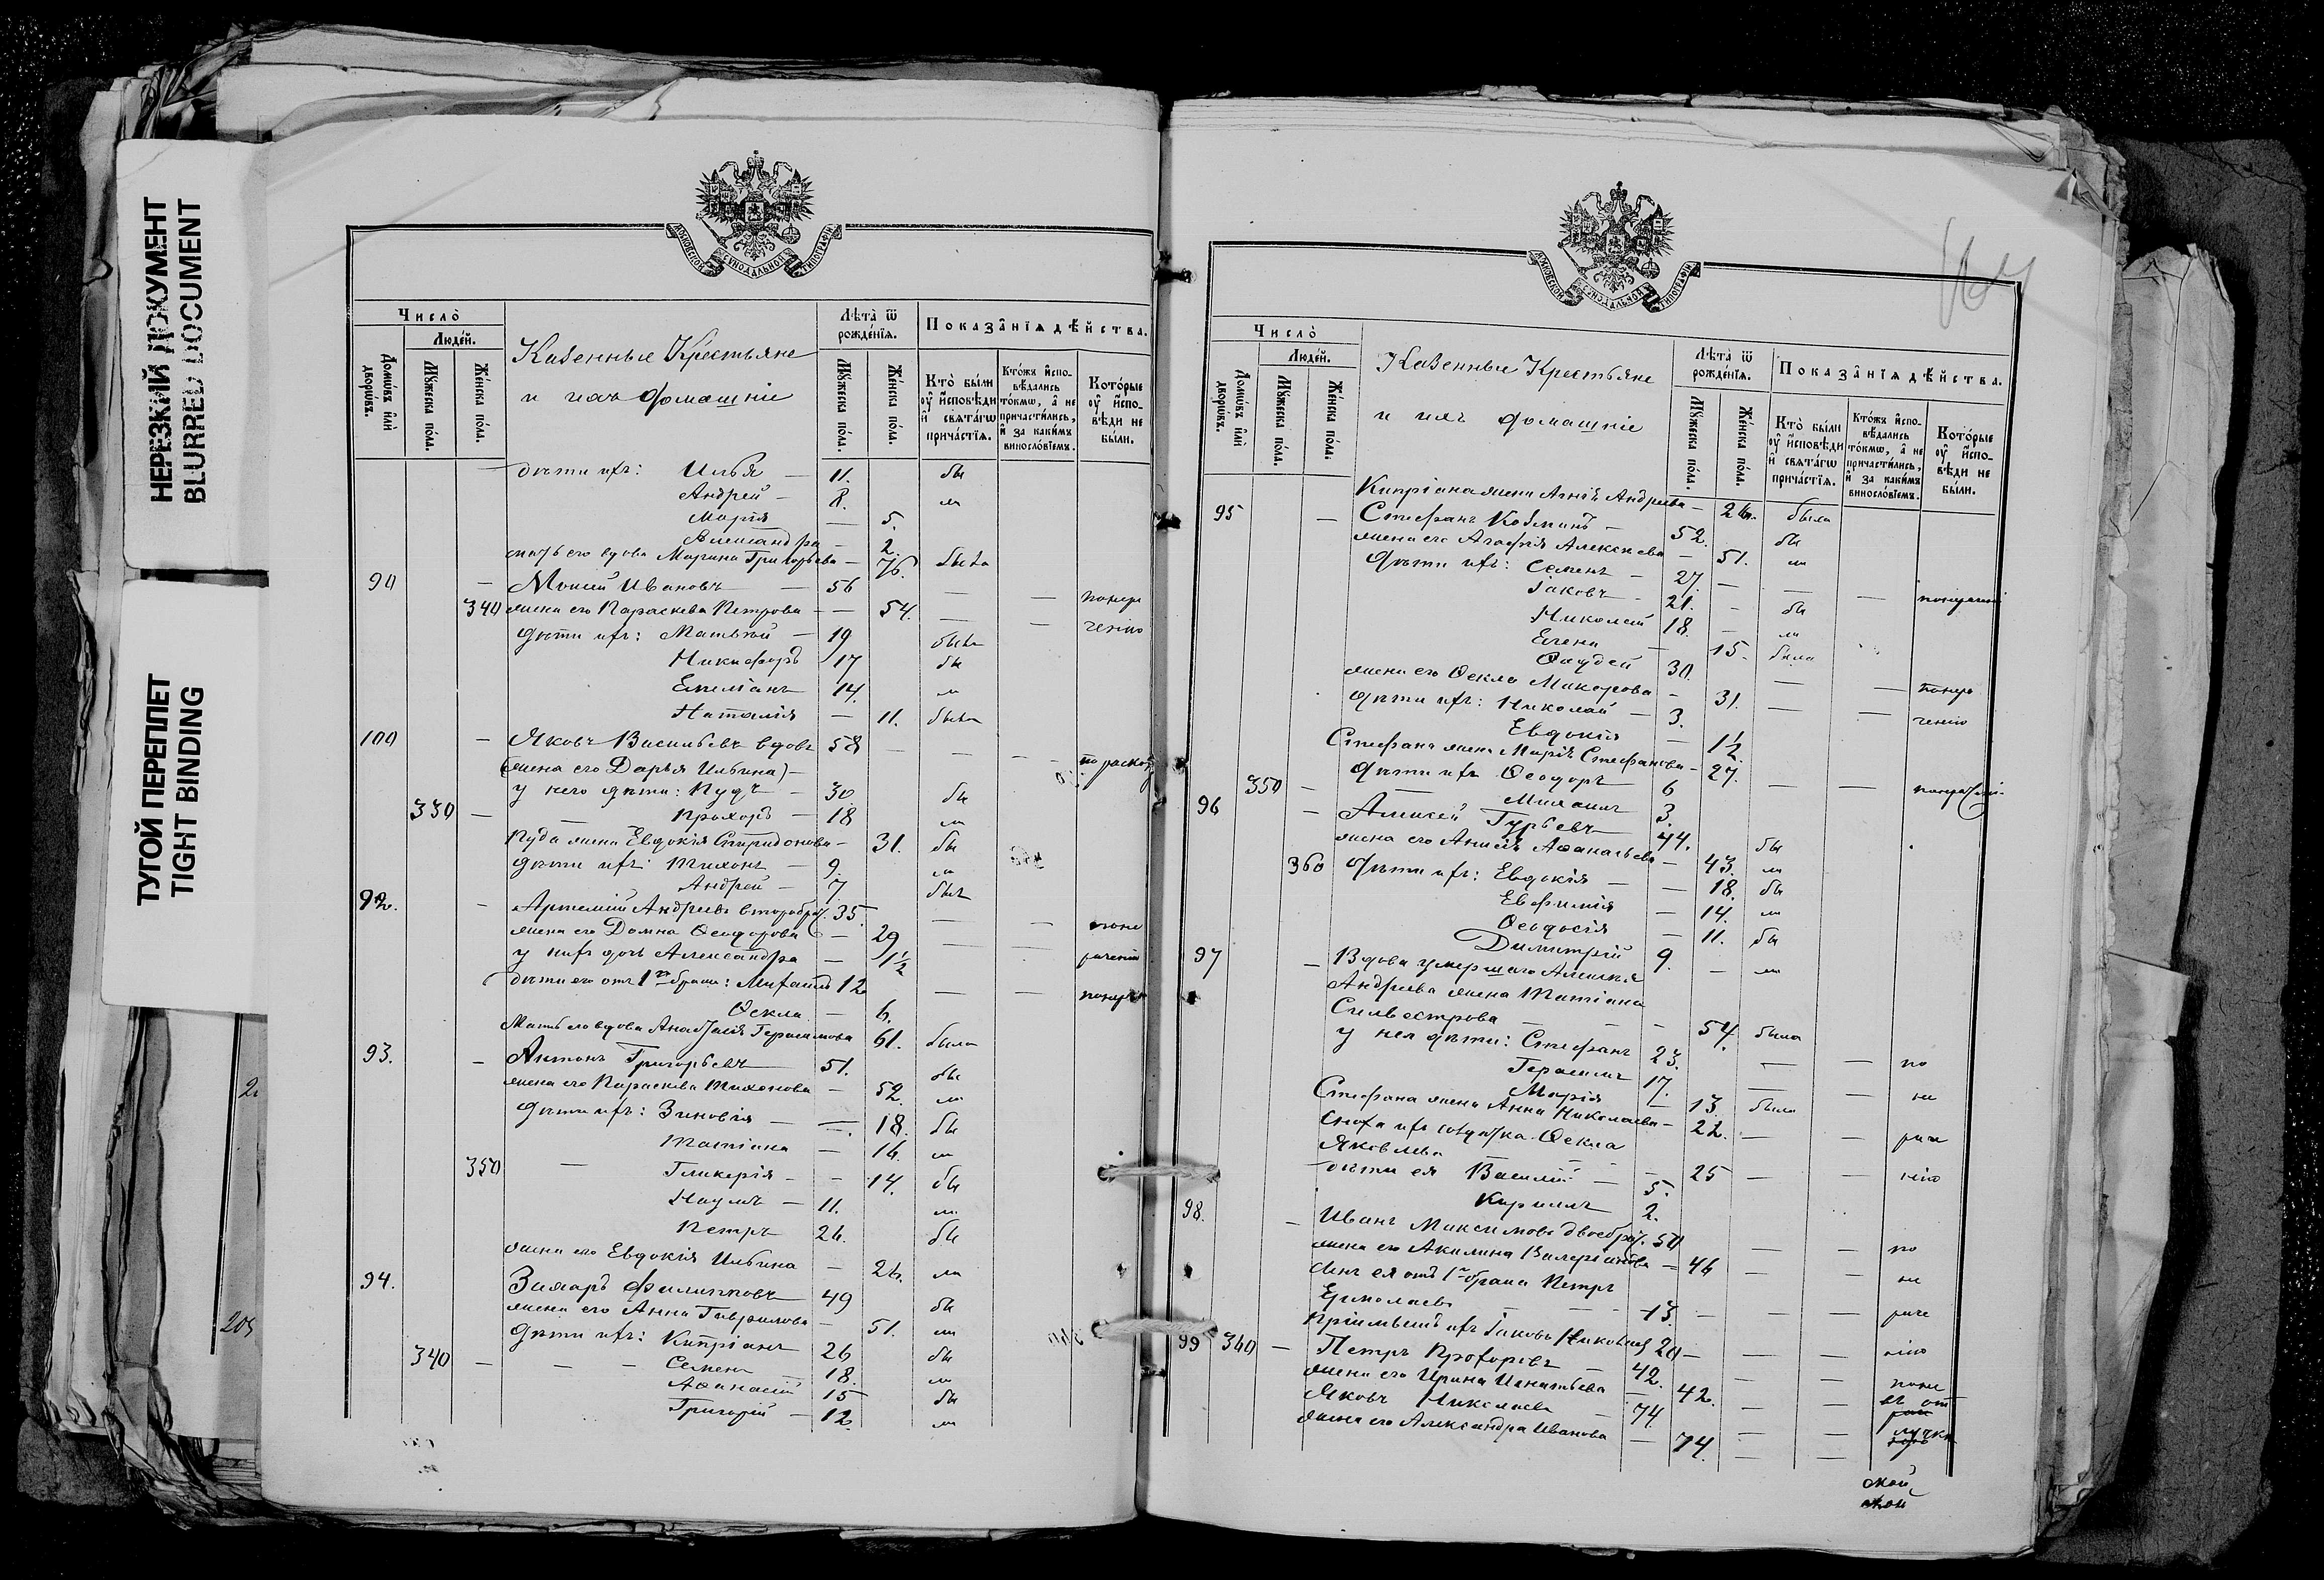 НЕРЕЗКИЙ ДОКУМЕНТ
BLURRED DOCUMENT
ТУГОЙ ПЕРЕПЛЕТ
TIGHT BINDING
МОСКОВСКОЙ СѴНОДАЛЬНОЙ ТИПОГРАФІИ
Число̀
Люде́й.
Домѡ́въ и҆лѝ дворѡ́въ.
Мꙋ́жеска по́ла.
Же́нска по́ла.
Казенные Крестьяне
и ихъ домашніе
Лѣ́та ѿ рожде́нїѧ.
Мꙋ́жеска по́ла.
Же́нска по́ла.
Показа̑нїѧ дѣ́йства.
Кто̀ бы́ли ᲂу҆ и҆сповѣ́ди и҆ свѧта́гѡ прича́стїѧ.
Кто́жъ и҆спо-вѣ́дались то́кмѡ, а҆ не причасти́лись, и҆ за каки́мъ винослᲂ́вїемъ.
Кото́рые ᲂу҆ и҆спо-вѣ́ди не бы́ли.
дѣти ихъ: Илья — 11. бы
Андрей — 8. ли
Марія — 5.
Александра — 2.
мать его вдова Марина Григорьева — 76. была
90 — Моисей Ивановъ — 56 — — понера
340 жена его Параскева Петрова — — 54. — — ченію
дѣти ихъ: Матвѣй — 19
Никифоръ 17 бы
Емеліанъ 14. ли
Наталія — 11. была
100 — Яковъ Васильевъ вдовъ 58 — —
(жена его Дарья Ильина) —
у него дѣти: Пудъ — 30 бы
330 — — Прохоръ — 18 ли
Пуда жена Евдокія Спиридонова — 31. бы
дѣти ихъ: Тихонъ — 9. ли
Андрей — 7 былъ
92. — Артемій Андреевъ второбрач. 35 — —
жена его Домна Ѳеодорова — 29 — —
у нихъ дочь Александра — 1½
дѣти его отъ 1го брака: Михаилъ 12 — —
Ѳекла — 6.
Мать его вдова Анастасія Герасимова 61. была
93. — Антонъ Григорьевъ 51. бы
жена его Параскева Тихонова — 52. ли
дѣти ихъ: Зиновія — —. 18. бы
Татіана — 16. ли
350 — Гликерія — — 14. бы
Наумъ — 11. ли
Петръ 26. бы
жена его Евдокія Ильина — 26. ли
94. Захаръ Филипповъ 49 бы
жена его Анна Гаврилова — 51. ли
дѣти ихъ: Кипріанъ 26 бы
340 — — — Семенъ 18. ли
Аѳанасій 15 бы
Григорій — 12. ли
МОСКОВСКОЙ СѴНОДАЛЬНОЙ ТИПОГРАФІИ
Число̀
Люде́й.
Домѡ́въ и҆лѝ дворѡ́въ.
Мꙋ́жеска по́ла.
Же́нска по́ла.
Казенные Крестьяне
и ихъ домашніе
Лѣ́та ѿ рожде́нїѧ.
Мꙋ́жеска по́ла.
Же́нска по́ла.
Показа̑нїѧ дѣ́йства.
Кто̀ бы́ли ᲂу҆ и҆сповѣ́ди и҆ свѧта́гѡ прича́стїѧ.
Кто́жъ и҆спо-вѣ́дались то́кмѡ, а҆ не причасти́лись, и҆ за каки́мъ винослᲂ́вїемъ.
Кото́рые ᲂу҆ и҆спо-вѣ́ди не бы́ли.
Кипріана жена Агнія Андреева — 26. была
95 — Стефанъ Козминъ — 52. бы
жена его Агафія Алексѣева — 51. ли
дѣти ихъ: Семенъ — 27. — — —
Іаковъ — 21. — бы
Николай 18. — ли
Елена — 15. была
Ѳаддей 30. — —
жена его Ѳекла Макарова — 31. — — ченію
дѣти ихъ: Николай — 3.
Евдокія — 1½
Стефана жена Марія Стефанова — 27. — —
350 — дѣти ихъ Ѳеодоръ 6
Михаилъ 3.
96 — Алексей Гурьевъ 44. бы
жена его Анисія Аѳанасьева — 43. ли
360 дѣти ихъ: Евдокія — — 18. бы
Евфимія — 14. ли
Ѳеодосія — 11. бы
Димитрій 9. — ли
97 — Вдова умершаго Алексѣя
Андреева жена Татіана
Сильвестрова — — — 54. была
у нея дѣти: Стефанъ 23. — — по
Герасимъ 17. — — не
Марія — 13. была
Стефана жена Анна Николаева — 22. — — раче
сноха ихъ солдатка Ѳекла
Яковлева — — — 25 — — нію
дѣти ея Василій — 5.
Кириллъ 2.
98. — Иванъ Максимовъ двоебрач. 50 — — по
жена его Акилина Валеріанова — 46 — — не
сынъ ея отъ 1го брака Петръ
Ермолаевъ — — — 13. — — — раче
пріемышъ ихъ Іаковъ 20 — — — нію
99 360 — Петръ Прохоровъ — 42. — — по не
жена его Ирина Игнатьева — 42. — — въ от
Яковъ Николаевъ — 74. — — лучкѣ
жена его Александра Иванова — 74. — —